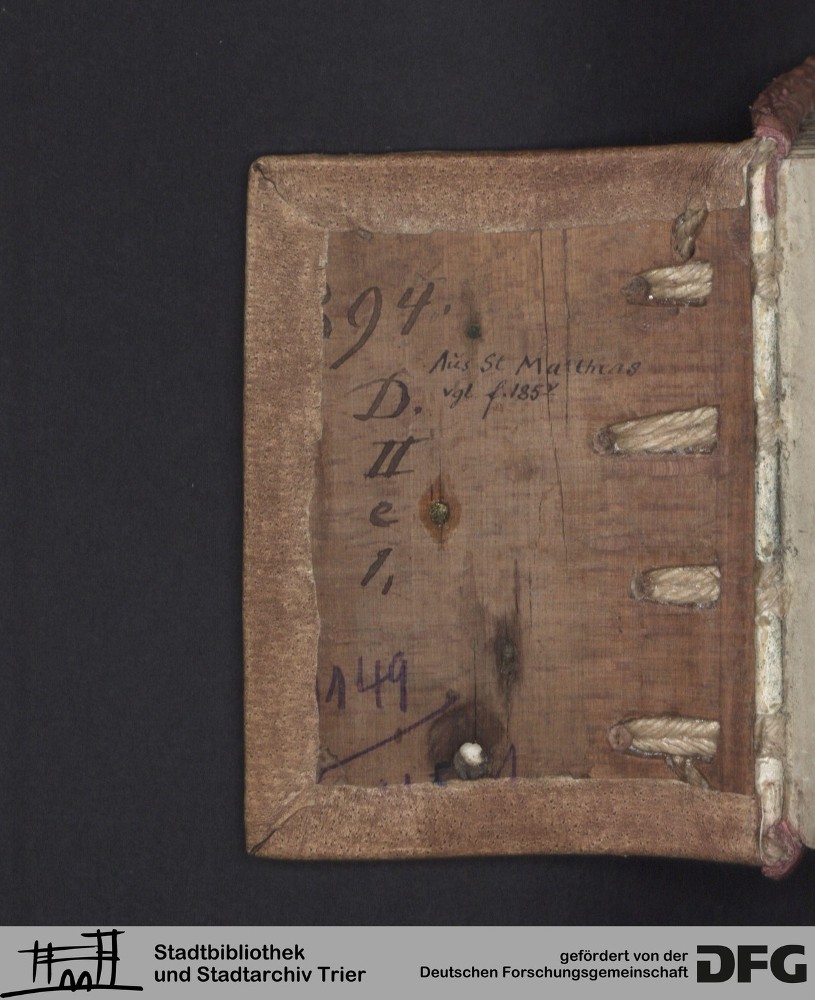 394.
Aus St Matthias
vgl f. 185v
D.
II
e
1,
1149
Stadtbibliothek
und Stadtarchiv Trier
gefördert von der
Deutschen Forschungsgemeinschaft
DFG